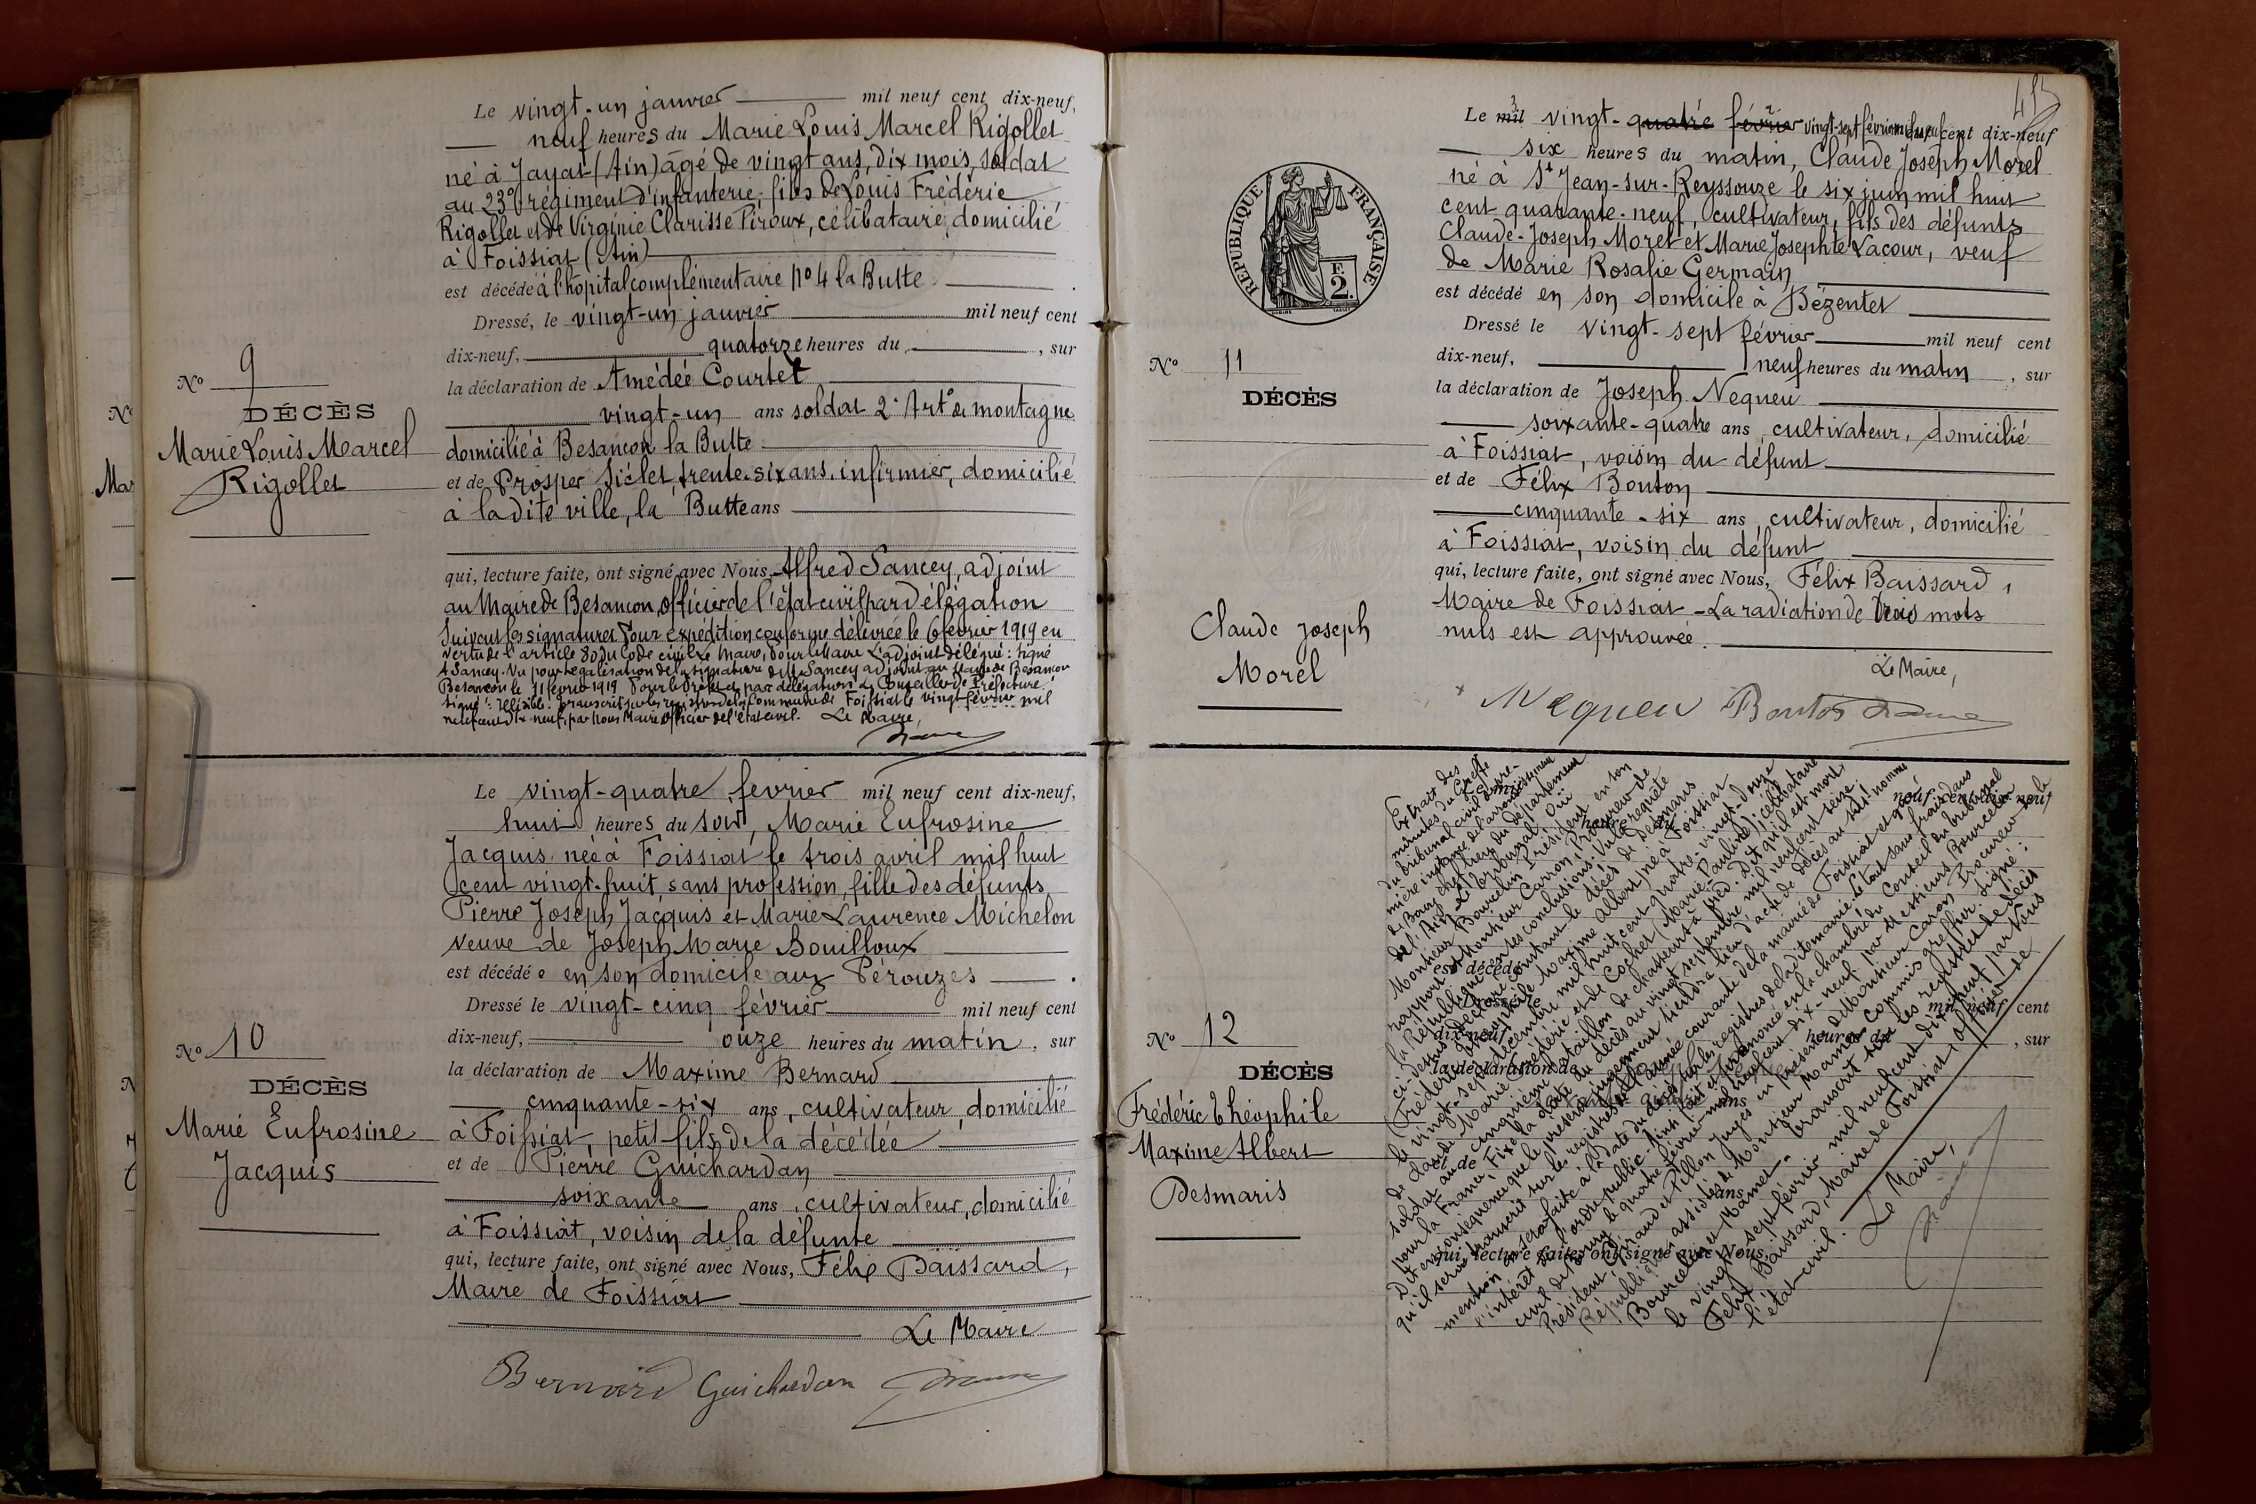 Le vingt-un janvier mil neuf cent dix-neuf,
neuf heures du Marie Louis Marcel Rigollet
né à Jayat (Ain) âgé de vingt ans, dix mois, soldat
au 23e régiment d'infanterie, fils de Louis Frédéric
Rigollet et de Virginie Clarisse Piroux, célibataire, domicilié
à Foissiat (Ain)
est décédé à l'hôpital complémentaire No 4 la Butte
Dressé, le vingt-un janvier mil neuf cent
dix-neuf, quatorze heures du , sur
la déclaration de Amédée Courtet
vingt-un ans soldat 2e Artie de montagne
domicilié à Besançon la Butte
et de Prosper Siclet, trente-six ans, infirmier, domicilié
à la dite ville, la Butte ans
qui, lecture faite, ont signé avec Nous, Alfred Sancey, adjoint
au Maire de Besançon, officier de l'état civil par délégation
Suivent les signatures Pour expédition conforme délivrée le 6 février 1919 en
vertu de l'article 80 du Code civil Le Maire, Pour le Maire L'adjoint délégué : signé
A Sancey. Vu pour légalisation de la signature de M Sancey adjoint au Maire de Besançon
Besançon le 11 février 1919 Pour le Préfet et par délégation Le Conseiller de Préfecture
signé : Illisible. Transcrit sur les registres de la commune de Foissiat le vingt février mil
neuf cent dix-neuf, par Nous Maire officier de l'état civil. Le Maire,
No 9
DÉCÈS
Marie Louis Marcel
Rigollet
Le vingt-quatre février mil neuf cent dix-neuf,
huit heures du soir, Marie Eufrosine
Jacquis née à Foissiat le trois avril mil huit
cent vingt-huit sans profession, fille des défunts
Pierre Joseph Jacquis et Marie Laurence Michelon
veuve de Joseph Marie Bouilloux
est décédée en son domicile aux Pérouzes
Dressé le vingt-cinq février mil neuf cent
dix-neuf, onze heures du matin, sur
la déclaration de Maxime Bernard
cinquante-six ans, cultivateur, domicilié
à Foissiat, petit-fils de la décédée
et de Pierre Guichardan
soixante ans, cultivateur, domicilié
à Foissiat, voisin de la défunte
qui, lecture faite, ont signé avec Nous, Félix Baissard,
Maire de Foissiat
Le Maire
Bernard Guichardan
No 10
DÉCÈS
Marie Eufrosine
Jacquis
Le mil vingt-quatre février vingt-sept février mil neuf cent dix-neuf
six heures du matin, Claude Joseph Morel
né à St Jean-sur-Reyssouze le six juin mil huit
cent quarante-neuf, cultivateur, fils des défunts
Claude-Joseph Morel et Marie Josephte Lacour, veuf
de Marie Rosalie Germain
est décédé en son domicile à Bézentet
Dressé le vingt-sept février mil neuf cent
dix-neuf, neuf heures du matin, sur
la déclaration de Joseph Nequeu
soixante-quatre ans, cultivateur, domicilié
à Foissiat, voisin du défunt
et de Félix Bouton
cinquante-six ans, cultivateur, domicilié
à Foissiat, voisin du défunt
qui, lecture faite, ont signé avec Nous, Félix Baissard,
Maire de Foissiat - La radiation de trois mots
nuls est approuvée.
Le Maire,
Nequeu Bouton
RÉPUBLIQUE FRANÇAISE
F.
2.
No 11
DÉCÈS
Claude Joseph
Morel
No 12
DÉCÈS
Frédéric Théophile
Maxime Albert
Desmaris
Extrait des
minutes du Greffe
du tribunal civil de pre-
mière instance de l'arrondissement
de Bourg chef lieu du département
de l'Ain. Le tribunal, Ouï
Monsieur Bourcelin Président en son
rapport et Monsieur Carron, Procureur de
la République en ses conclusions. Vu la requête
ci-dessus, déclare constant le décès de Desmaris
Frédéric Théophile Maxime Albert, né à Foissiat
le vingt-sept décembre mil huit cent quatre-vingt-douze
de Claude Marie Frédéric et de Cochet Marie Pauline, célibataire
soldat au cinquième bataillon de chasseurs à pied. Dit qu'il est mort
pour la France, Fixe la date du décès au vingt septembre mil neuf cent seize.
Dit en conséquence que le présent jugement tiendra lieu d'acte de décès au susnommé
qu'il sera transcrit sur les registres de l'année courante de la mairie de Foissiat et que
mention en sera faite à la date du décès sur les registres de la dite mairie. Le tout sans frais dans
l'intérêt de l'ordre public. Ainsi fait et prononcé en la chambre du Conseil du tribunal
civil de Bourg le quatre février mil neuf cent dix-neuf par Messieurs Bourcelin
Président, Giraud et Pillon Juges en présence de Monsieur Caron Procureur de la
République assistés de Monsieur Mamet commis greffier. Signé :
Bourcelin et Mamet. Transcrit sur les registres de décès
le vingt-sept février mil neuf cent dix-neuf par Nous
Félix Baissard, Maire de Foissiat, officier de
l'état-civil.
Le Maire,
est décédé
Dressé le mil neuf cent
dix-neuf, heures du , sur
la déclaration de
ans
et de
ans
qui, lecture faite, ont signé avec Nous,